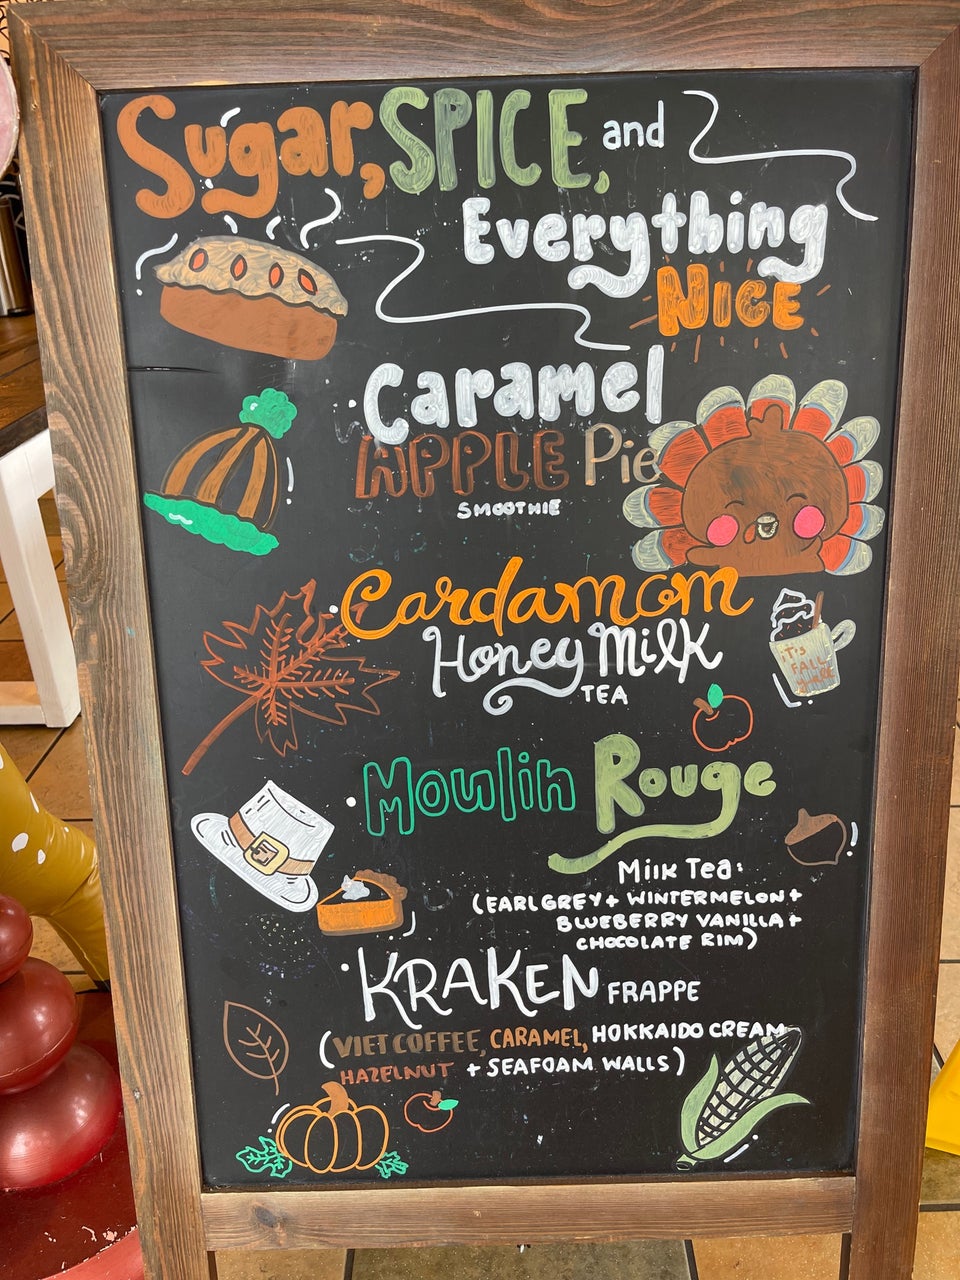 Sugar, SPICE, and
Everything
NICE
Caramel
APPLE Pie
SMOOTHIE
Cardamom
Honey Milk
TEA
IT'S
FALL
Y'ALL
Moulin Rouge
Milk Tea:
(EARLGREY + WINTERMELON +
BLUEBERRY VANILLA +
CHOCOLATE RIM)
KRAKEN FRAPPE
(VIET COFFEE, CARAMEL, HOKKAIDO CREAM
HAZELNUT + SEAFOAM WALLS)